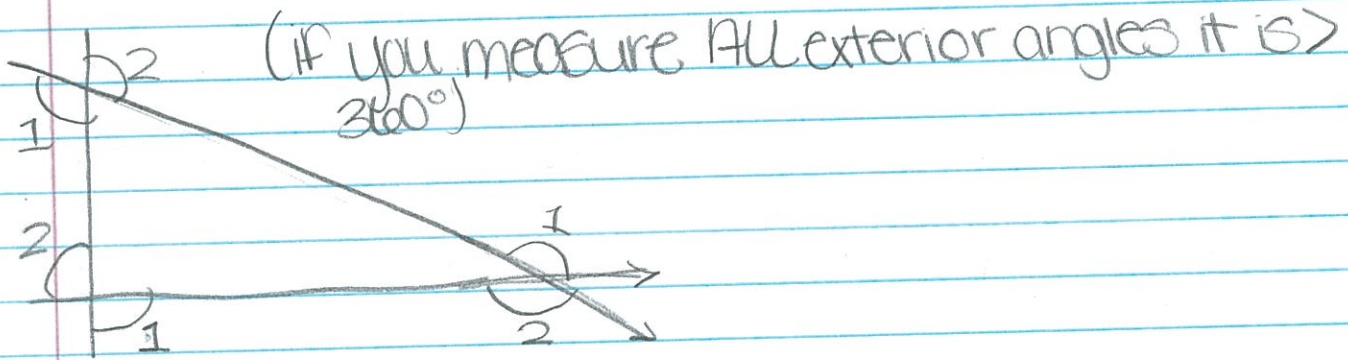 (if you measure All exterior angles it is >
360°)
2
1
2
1
1
2